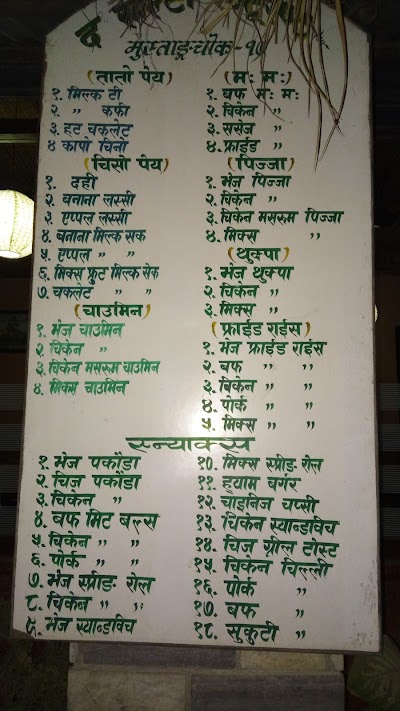 मुस्ताङचोक-१७
(तातो पेय)
१. मिल्क टी
२. ,, कफी
३. हट चकलेट
४ कापो चिनो
(चिसो पेय)
१. दही
२. बनाना लस्सी
३. एप्पल लस्सी
४. बनाना मिल्क सेक
५. एप्पल ,, ,,
६. मिक्स फ्रुट मिल्क सेक
७. चकलेट ,, ,,
(चाउमिन)
१. भेज चाउमिन
२. चिकेन ,,
३. चिकेन मसरुम चाउमिन
४. मिक्स चाउमिन
(मःमः)
१. बफ मःमः
२. चिकेन ,,
३. ससेज ,,
४. फ्राईड ,,
(पिज्जा)
१. भेज पिज्जा
२. चिकेन ,,
३. चिकेन मसरुम पिज्जा
४. मिक्स ,,
(थुक्पा)
१. भेज थुक्पा
२. चिकेन ,,
३. मिक्स ,,
(फ्राईड राईस)
१. भेज फ्राईड राईस
२. बफ ,, ,,
३. चिकेन ,, ,,
४. पोर्क ,, ,,
५. मिक्स ,, ,,
स्न्याक्स
१. भेज पकौडा
२. चिज पकौडा
३. चिकेन ,, ,,
४. बफ मिट बल्स
५. चिकेन ,, ,,
६. पोर्क ,, ,,
७. भेज स्प्रीङ रोल
८. चिकेन ,, ,,
९. भेज स्यान्डविच
१०. मिक्स स्प्रीङ रोल
११. ह्याम बर्गर
१२. चाइनिज चप्सी
१३. चिकेन स्यान्डविच
१४. चिज ग्रील टोस्ट
१५. चिकेन चिल्ली
१६. पोर्क ,,
१७. बफ ,,
१८. सुकुटी ,,